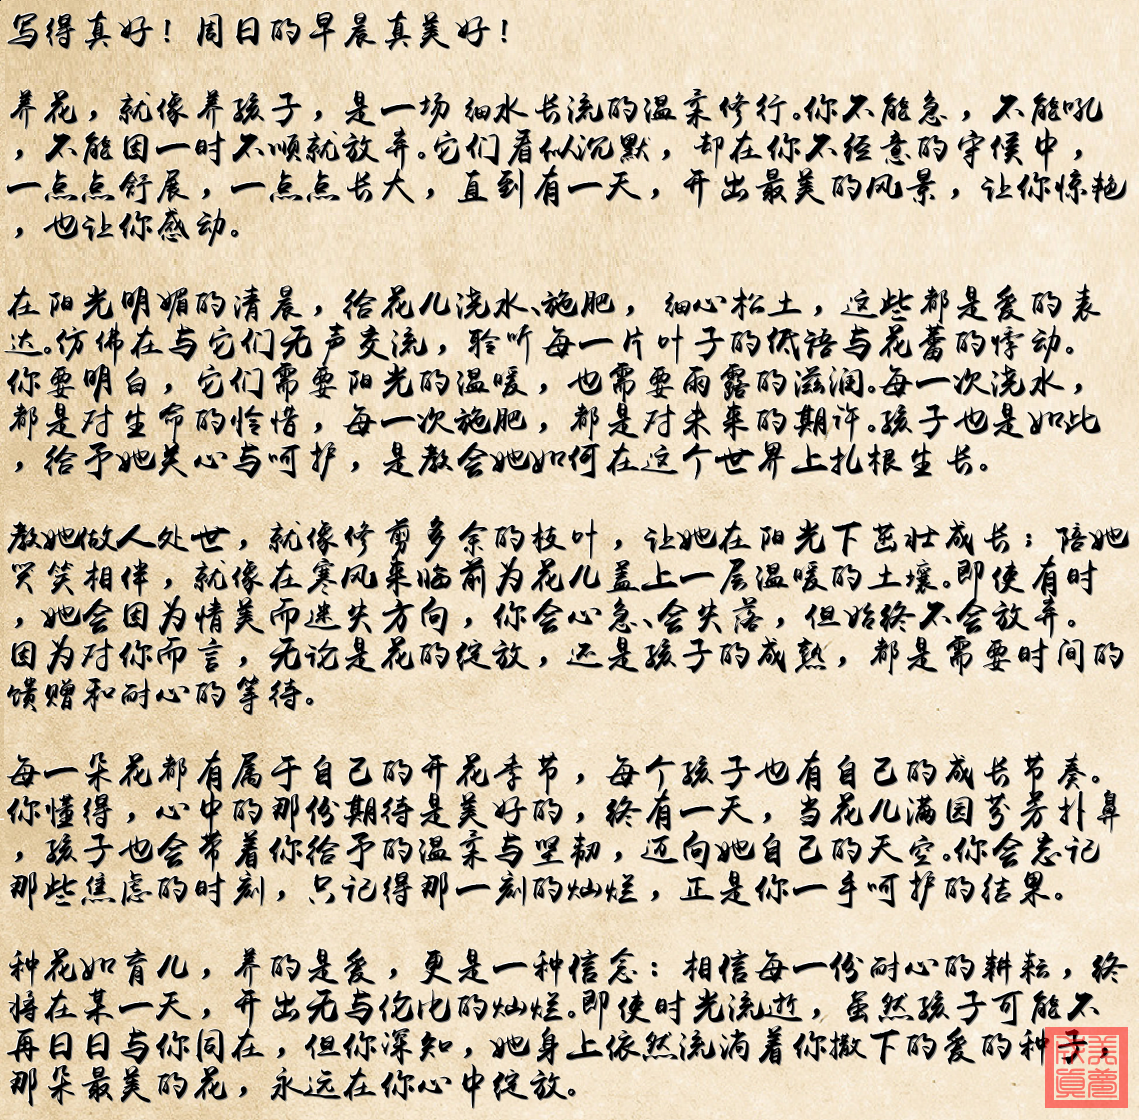 写得真好！周日的早晨真美好！
养花，就像养孩子，是一场 细水长流的温柔修行。你不能急，不能吼
，不能因一时不顺就放弃。它们看似沉默，却在你不经意的守候中，
一点点舒展，一点点长大，直到有一天，开出最美的风景，让你惊艳
，也让你感动。
在阳光明媚的清晨，给花儿浇水、施肥， 细心松土，这些都是爱的表
达。仿佛在与它们无声交流，聆听每一片叶子的低语与花蕾的悸动。
你要明白，它们需要阳光的温暖，也需要雨露的滋润。每一次浇水，
都是对生命的怜惜，每一次施肥，都是对未来的期许。孩子也是如此
，给予她关心与呵护，是教会她如何在这个世界上扎根生长。
教她做人处世，就像修剪多余的枝叶，让她在阳光下茁壮成长；陪她
哭笑相伴，就像在寒风来临前为花儿盖上一层温暖的土壤。即使有时
，她会因为情美而迷失方向，你会心急、会失落，但始终不会放弃。
因为对你而言，无论是花的绽放，还是孩子的成熟，都是需要时间的
馈赠和耐心的等待。
每一朵花都有属于自己的开花季节，每个孩子也有自己的成长节奏。
你懂得，心中的那份期待是美好的，终有一天，当花儿满园芬芳扑鼻
，孩子也会带着你给予的温柔与坚韧，迈向她自己的天空。你会忘记
那些焦虑的时刻，只记得那一刻的灿烂，正是你一手呵护的结果。
种花如育儿，养的是爱，更是一种信念：相信每一份耐心的耕耘，终
将在某一天，开出无与伦比的灿烂。即使时光流逝，虽然孩子可能不
再日日与你同在，但你深知，她身上依然流淌着你撒下的爱的种子，
那朵最美的花，永远在你心中绽放。